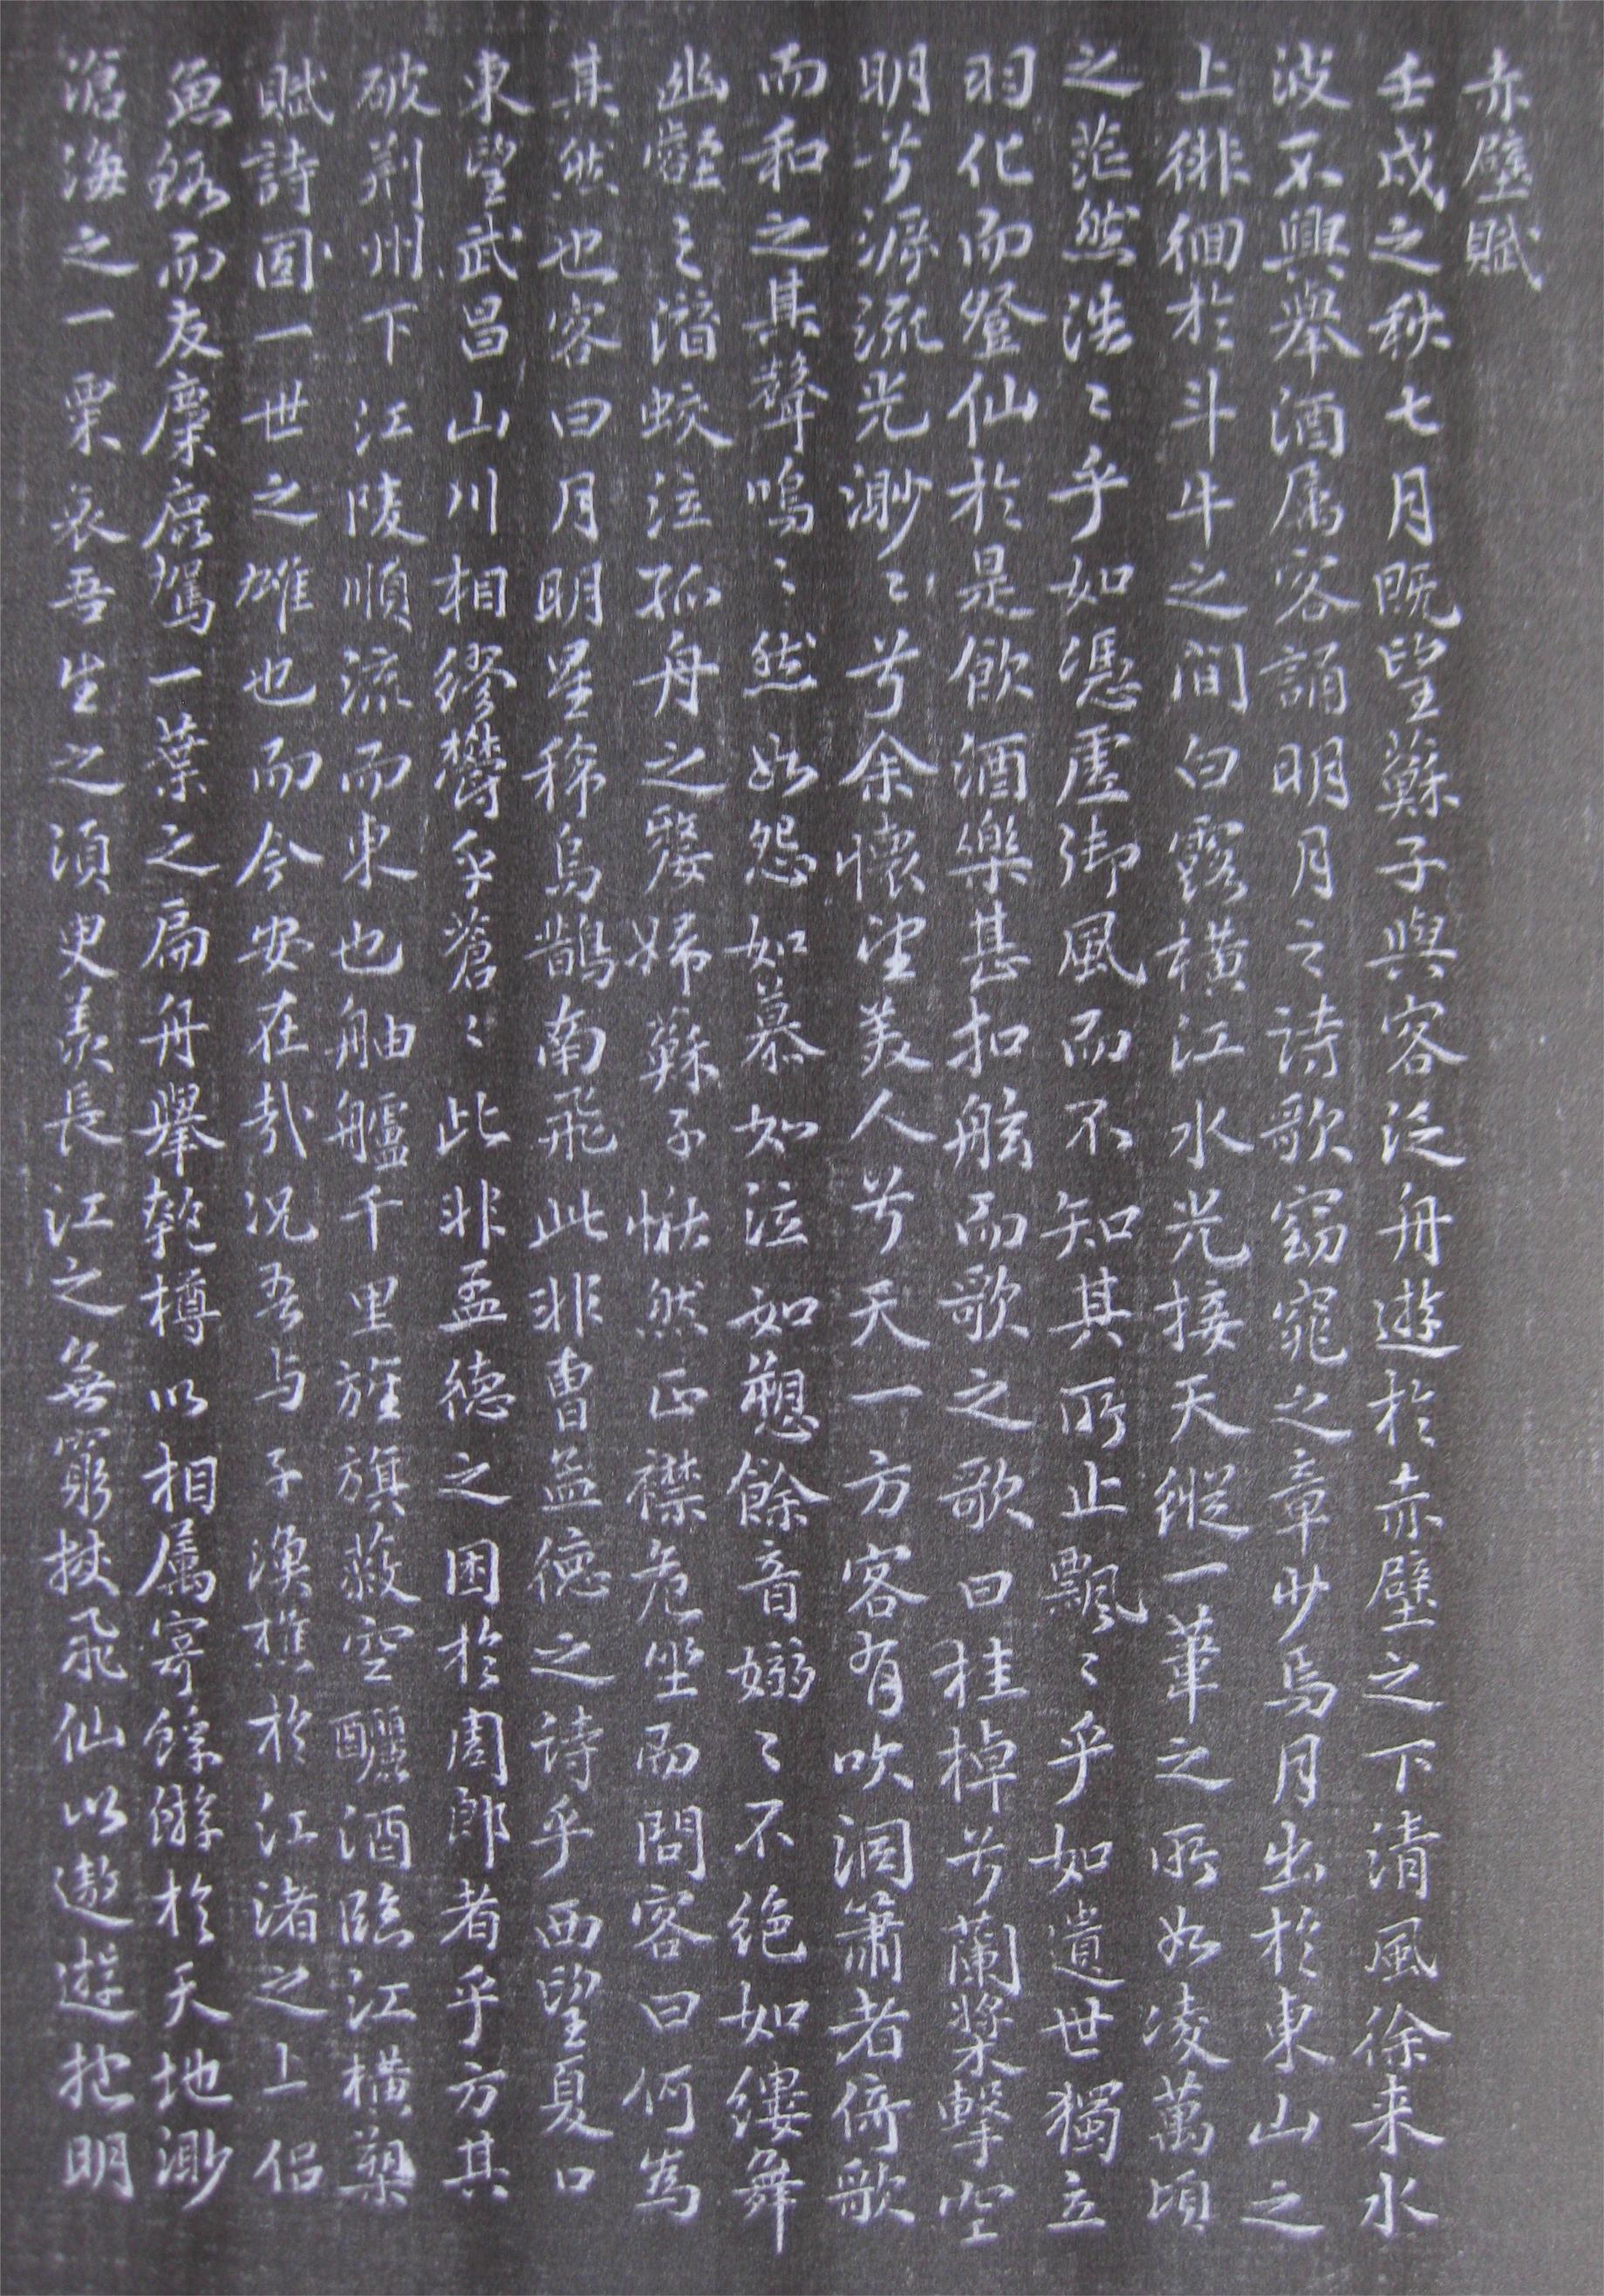 赤壁賦
壬戌之秋七月既望蘇子與客泛舟遊於赤壁之下清風徐来水
波不興舉酒属客誦明月之詩歌窈窕之章少焉月出於東山之
上徘徊於斗牛之间白露横江水光接天縱一葦之所如凌萬頃
之茫然浩〻乎如憑虚御風而不知其所止飄〻乎如遺世獨立
羽化而登仙於是飲酒樂甚扣舷而歌之歌曰桂棹兮蘭槳擊空
明兮泝流光渺〻兮余懷望美人兮天一方客有吹洞簫者倚歌
而和之其聲嗚〻然如怨如慕如泣如愬餘音嫋〻不绝如缕舞
幽壑之潜蛟泣孤舟之嫠婦蘇子愀然正襟危坐而問客曰何為
其然也客曰月明星稀烏鵲南飛此非曹孟德之诗乎西望夏口
東望武昌山川相繆欝乎蒼〻此非孟德之困於周郎者乎方其
破荆州下江陵順流而東也舳艫千里旌旗蔽空釃酒臨江横槊
賦詩固一世之雄也而今安在哉况吾与子漁樵於江渚之上侣
魚鰕而友麋鹿駕一葉之扁舟舉匏樽以相属寄蜉蝣於天地渺
滄海之一粟哀吾生之湏臾羨長江之無窮挾飛仙以遨遊抱明